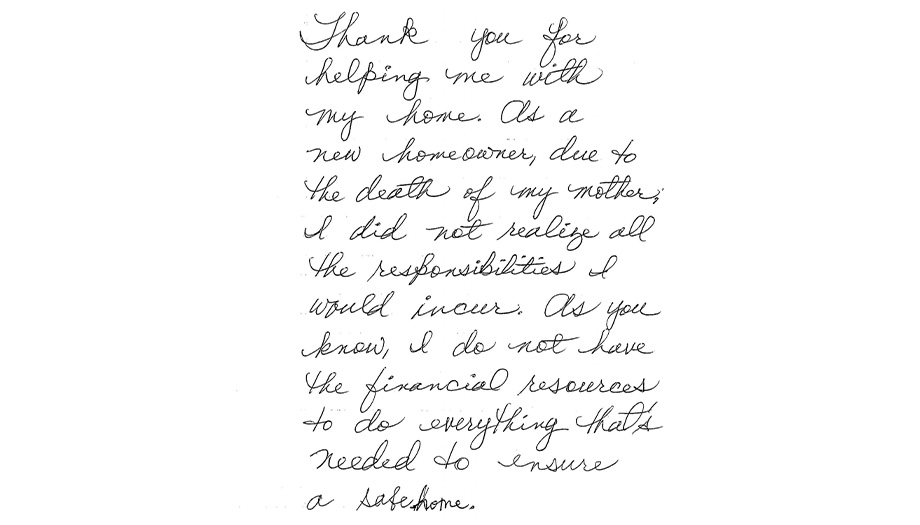 Thank you for
helping me with
my home. As a
new homeowner, due to
the death of my mother,
I did not realize all
the responsibilities I
would incur. As you
know, I do not have
the financial resources
to do everything that's
needed to ensure
a safe home.